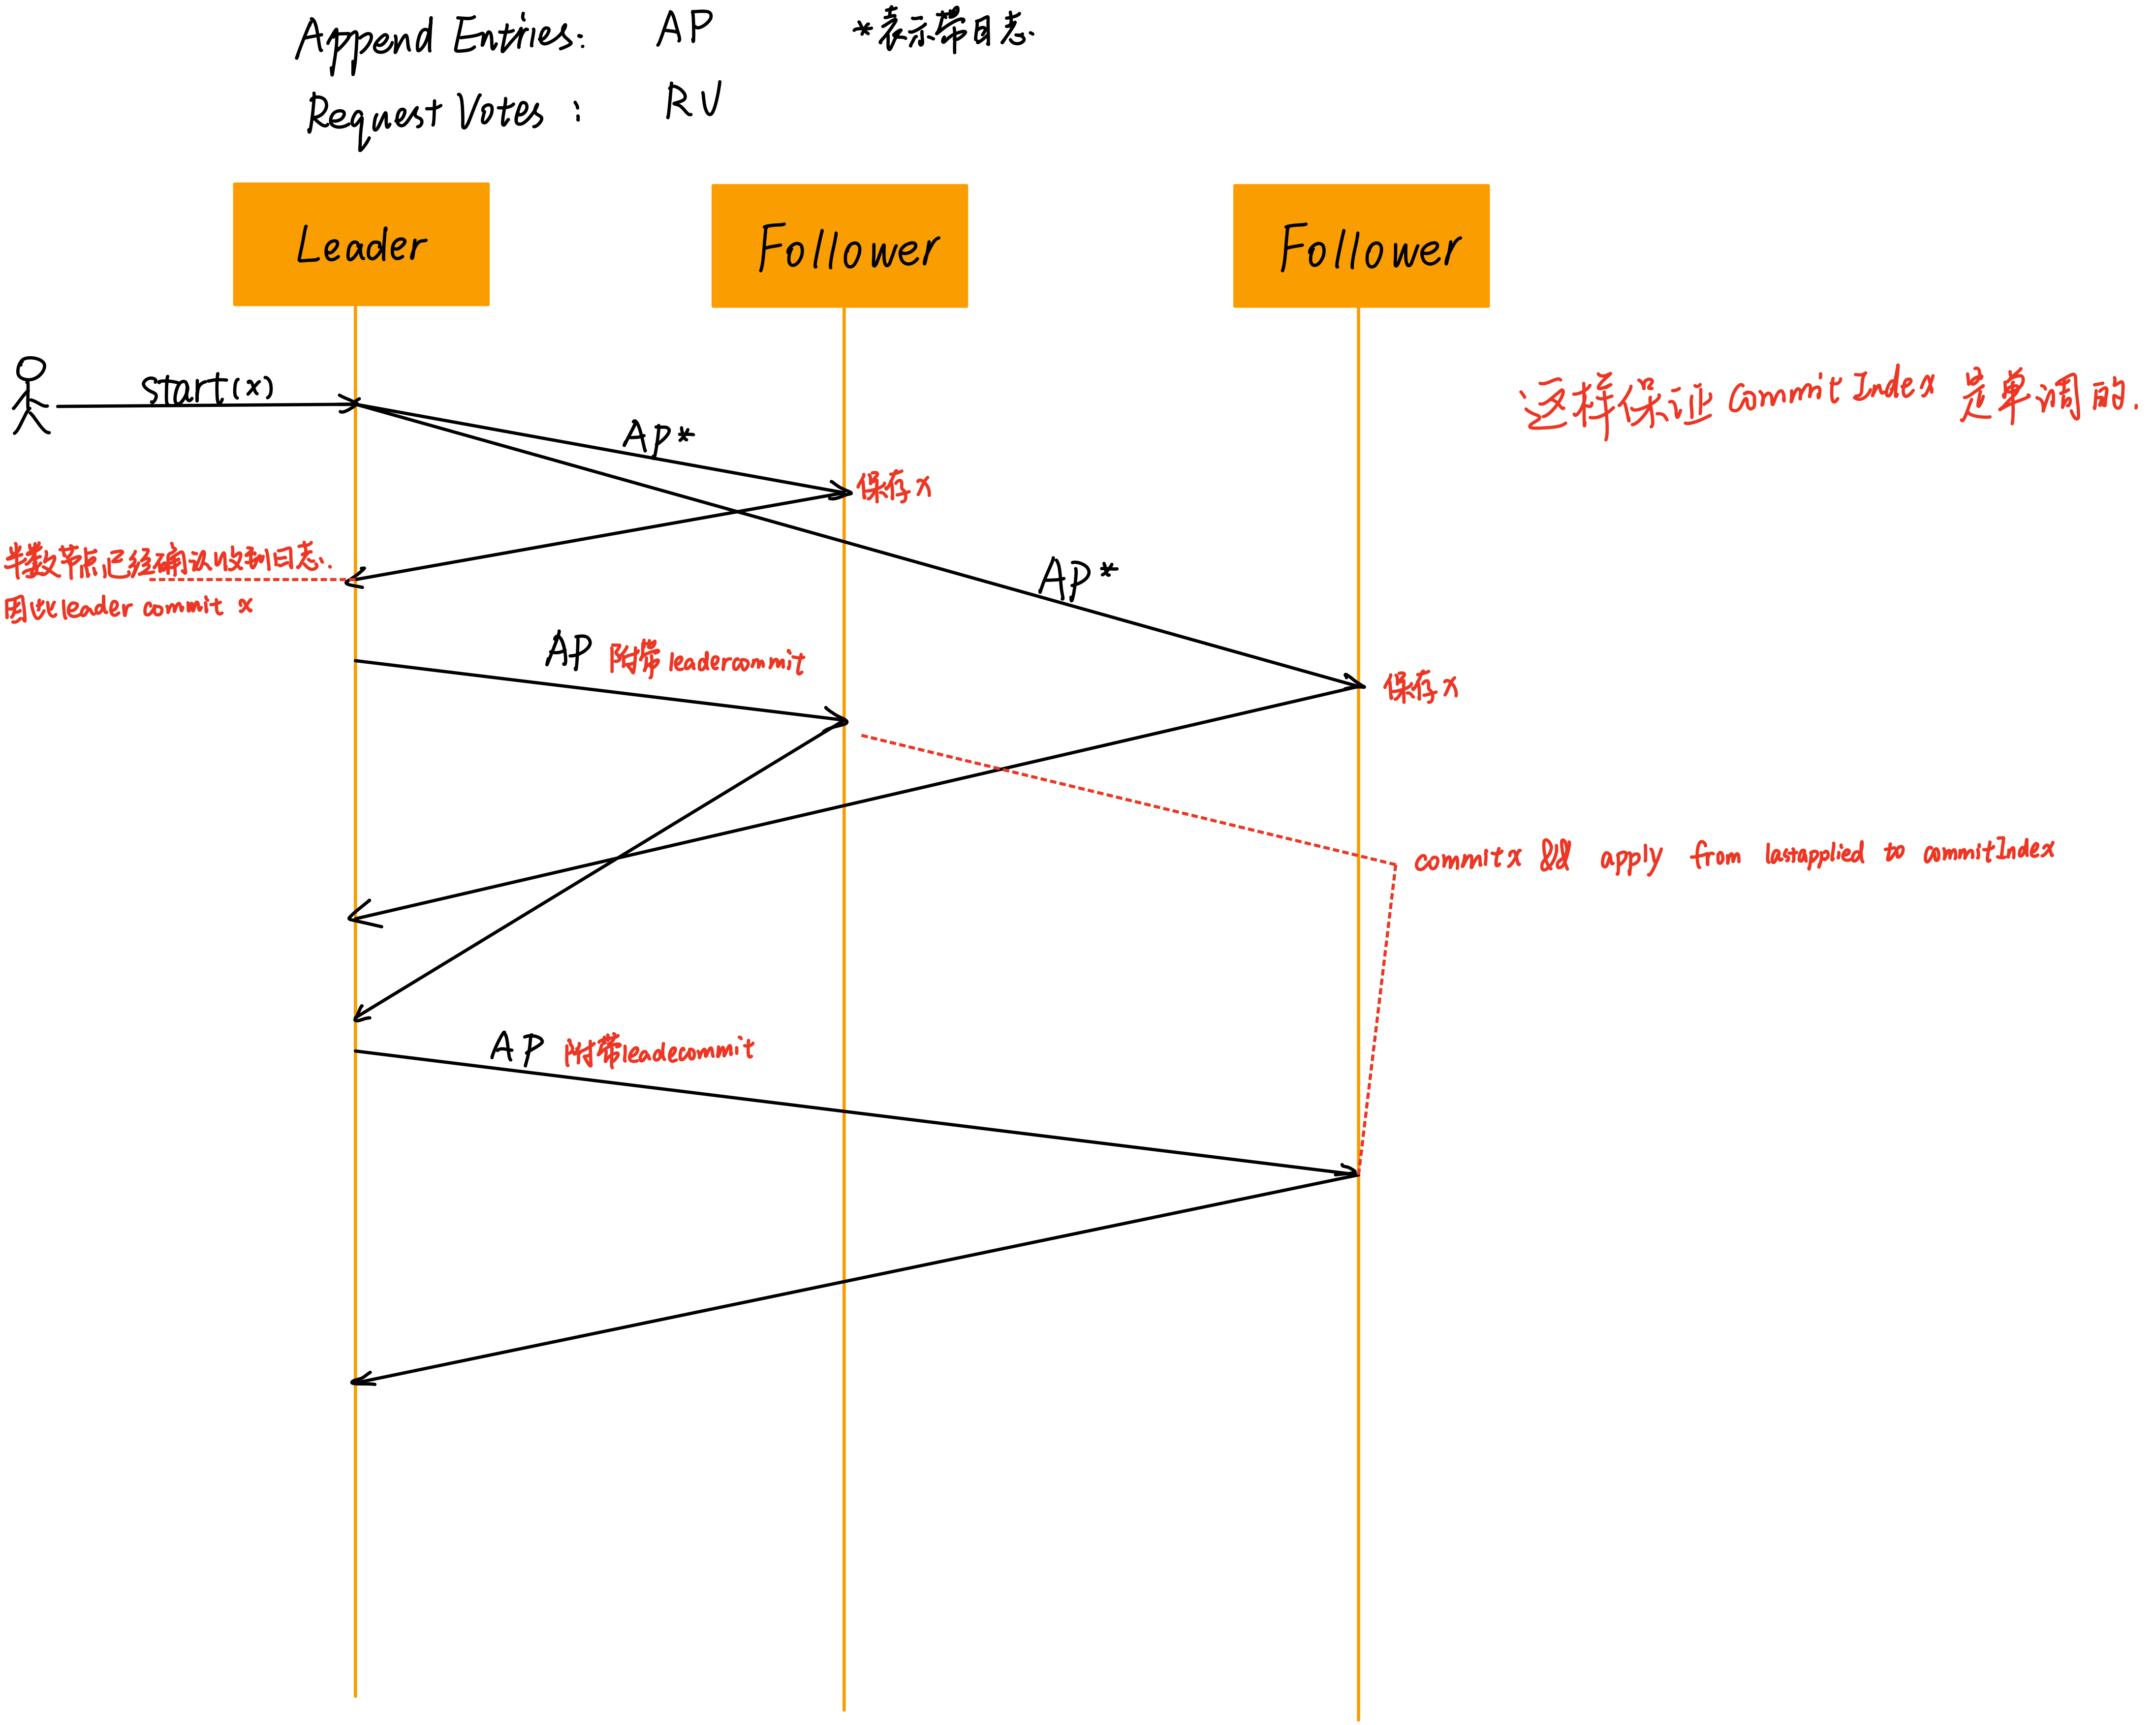 Append Entries: AP *表示带日志.
Request Votes: RV
Leader
Follower
Follower
start(x)
这样保证 Commit Index 是单调的.
AP*
保存x
半数节点已经确认收到日志.
因此leader commit x
AP*
AP 附带leadercommit
保存x
commit x && apply from lastapplied to commitIndex
AP 附带leadecommit